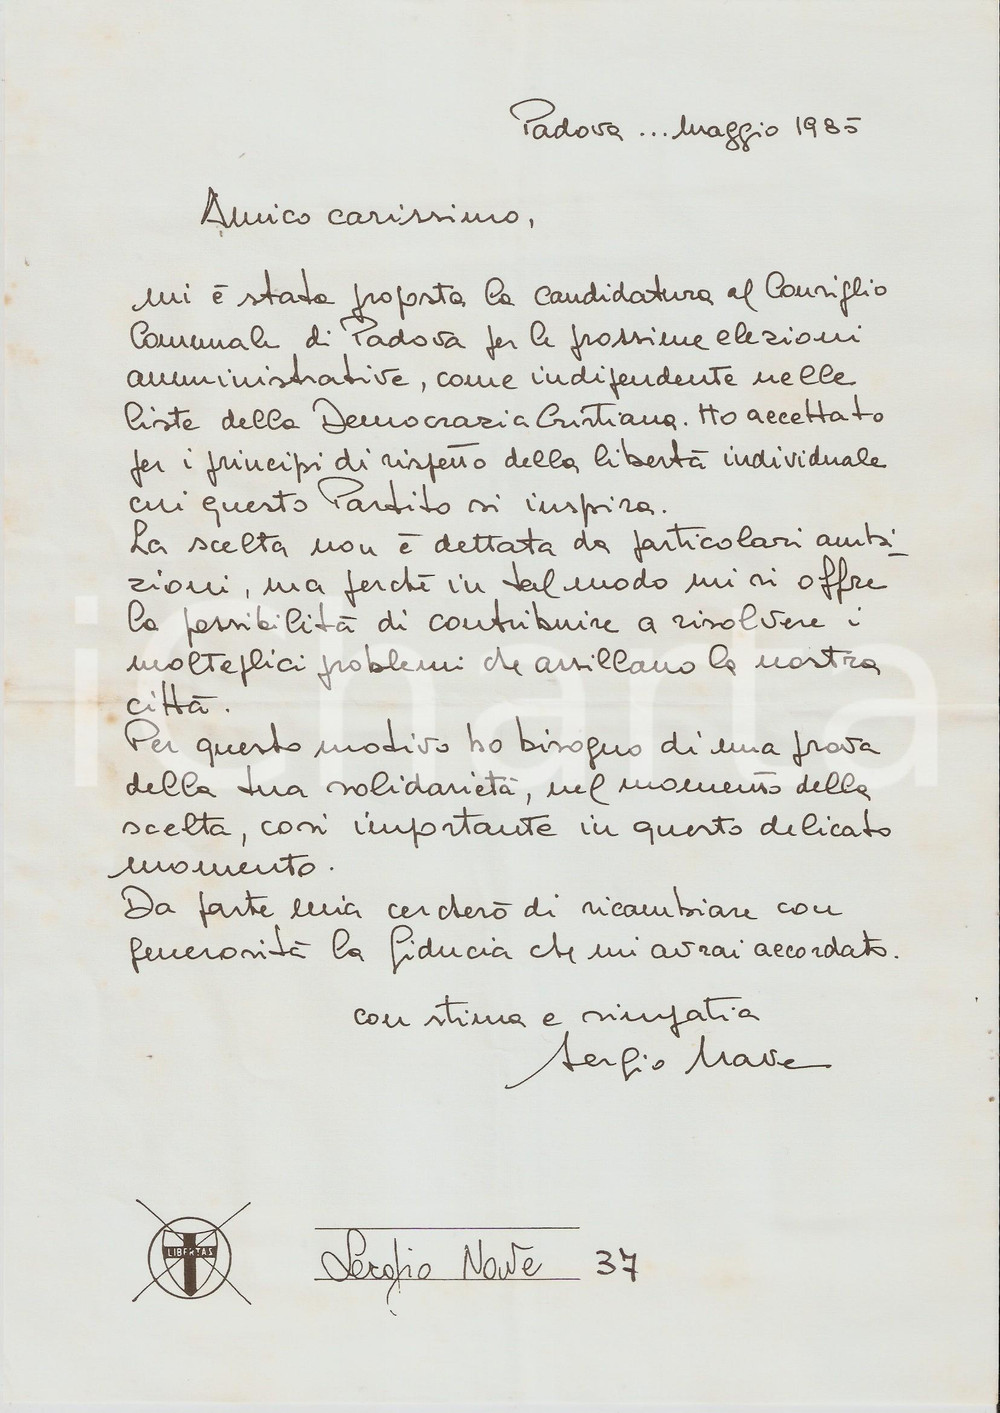 Padova ... Maggio 1985
Amico carissimo,
mi è stata proposta la candidatura al Consiglio
Comunale di Padova per le prossime elezioni
amministrative, come indipendente nelle
liste della Democrazia Cristiana. Ho accettato
per i principi di rispetto della libertà individuale
cui questo Partito si inspira.
La scelta non è dettata da particolari ambi-
zioni, ma perché in tal modo mi si offre
la possibilità di contribuire a risolvere i
molteplici problemi che assillano la nostra
città.
Per questo motivo ho bisogno di una prova
della tua solidarietà, nel momento della
scelta, così importante in questo delicato
momento.
Da parte mia cercherò di ricambiare con
generosità la fiducia che mi avrai accordato.
con stima e simpatia
Sergio Nave
LIBERTAS
Sergio Nave 37
iCharta